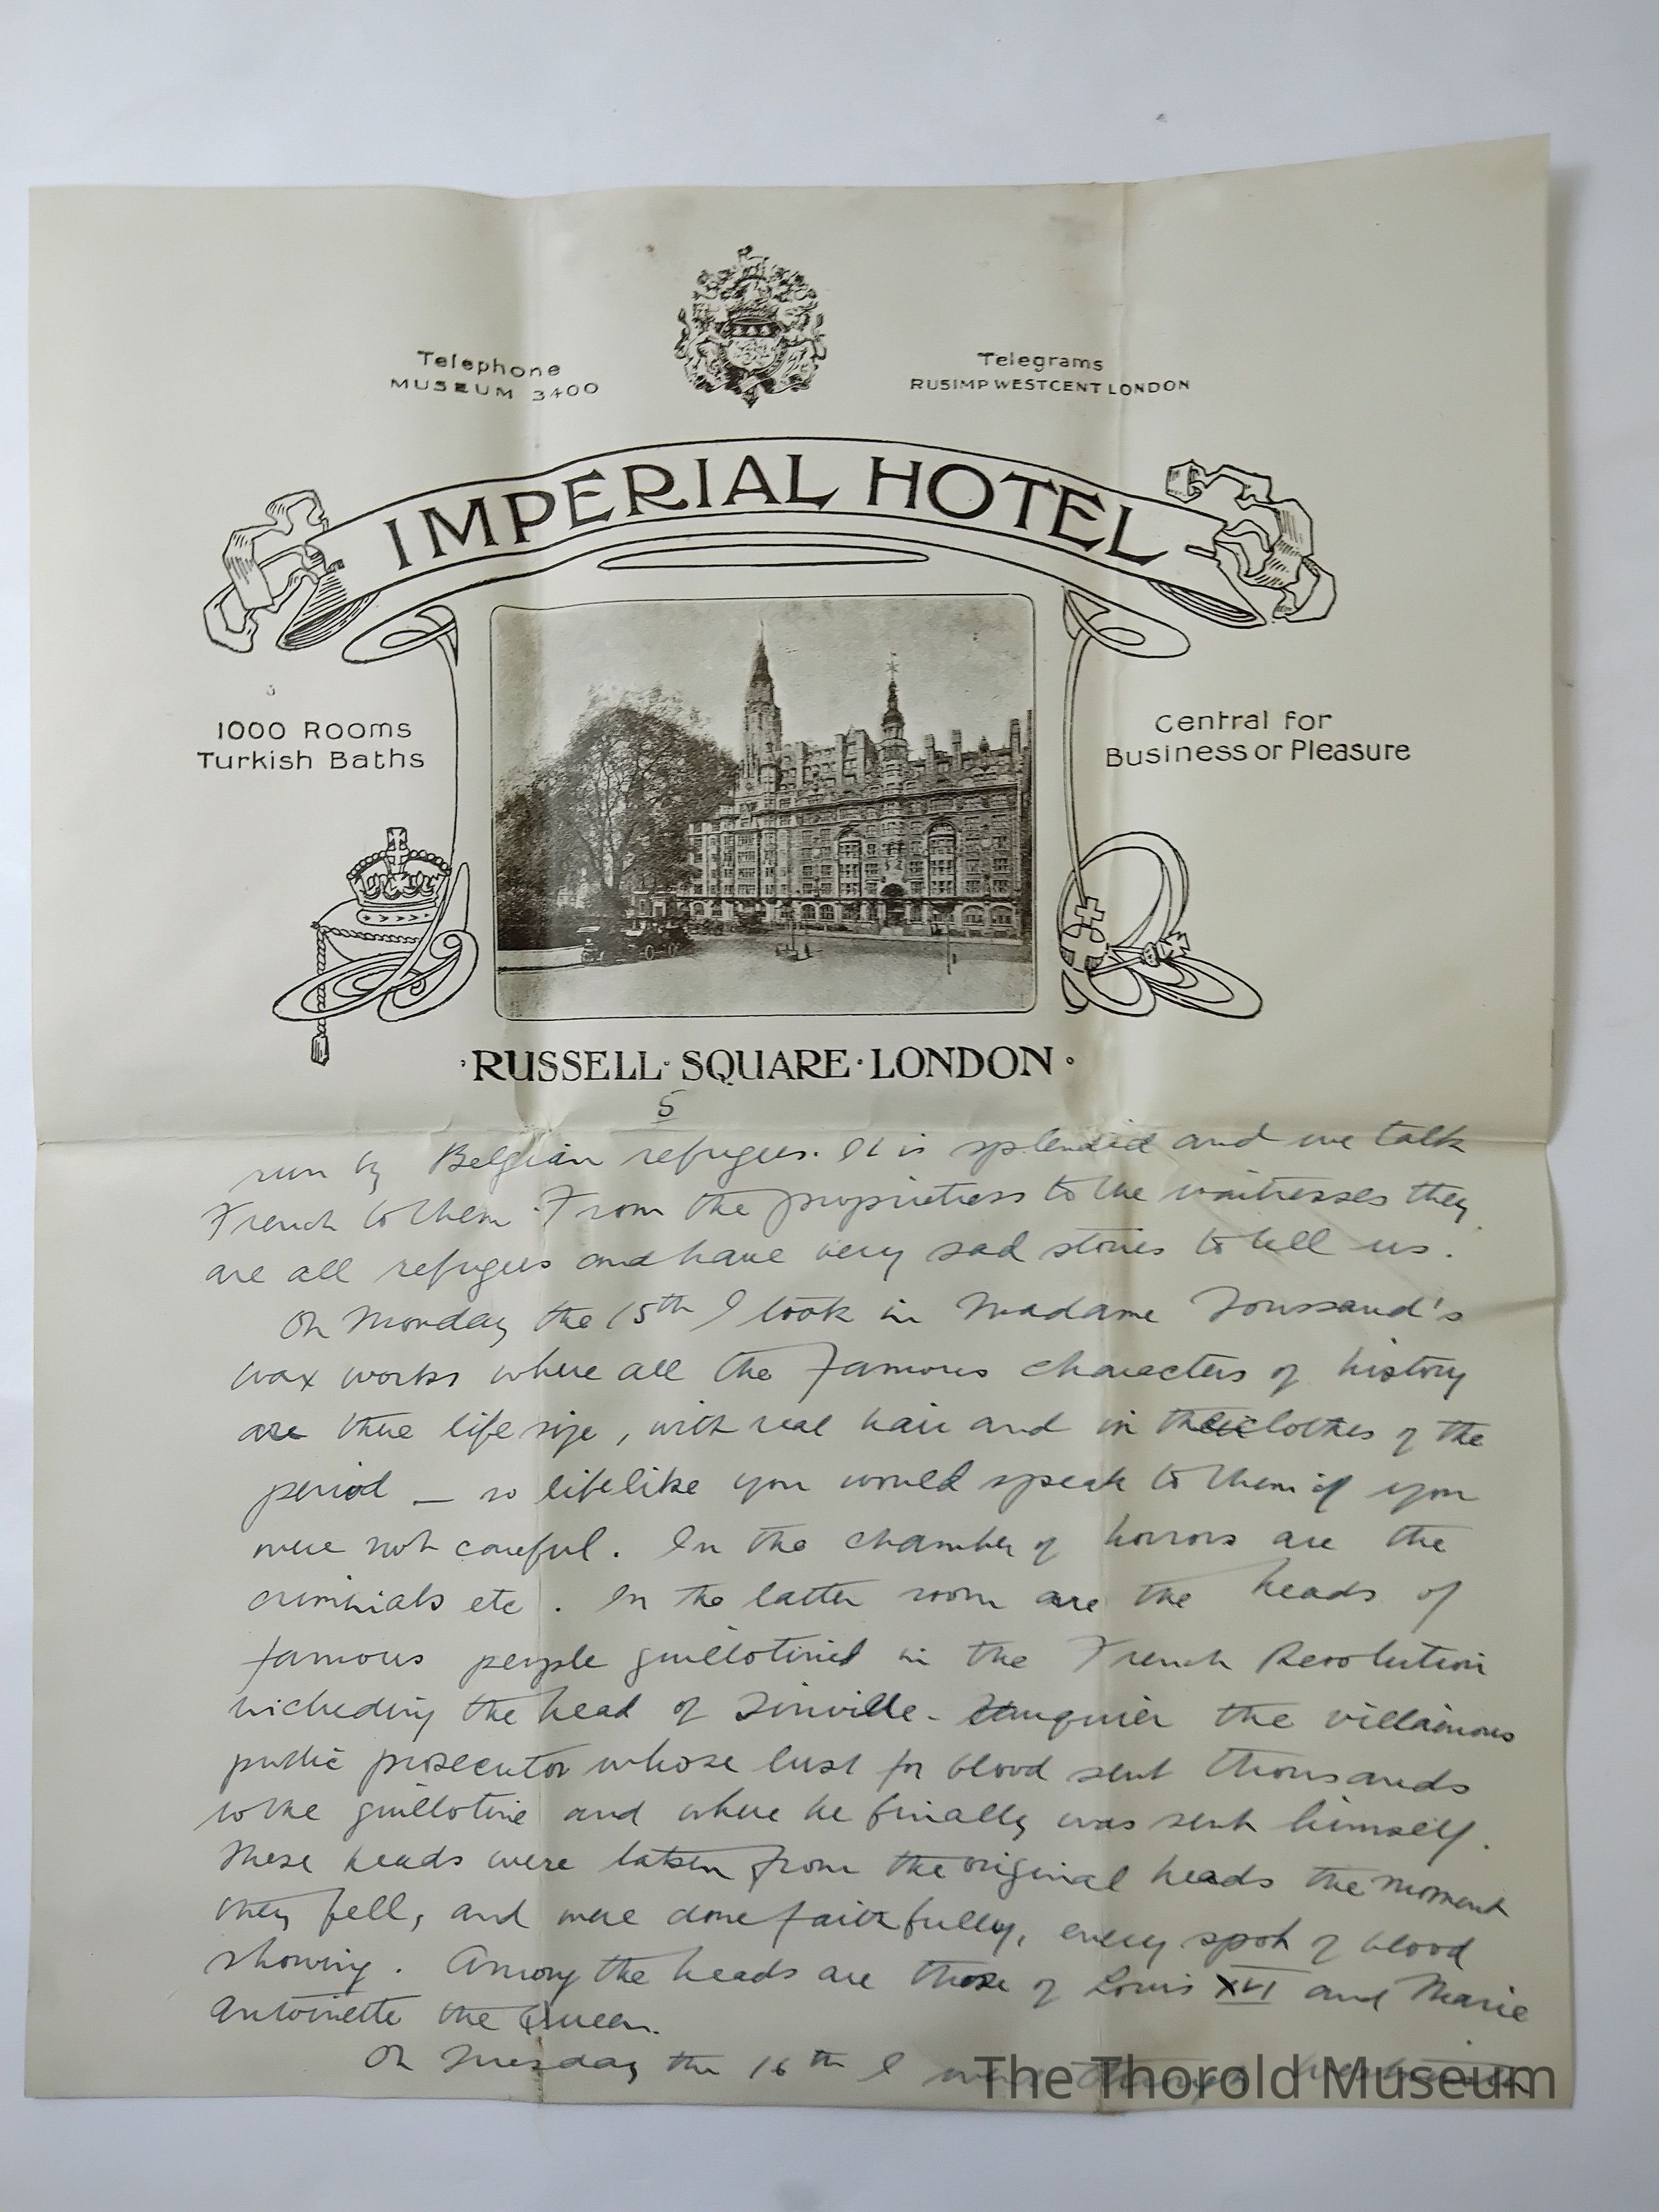 Telephone
MUSEUM 3400
Telegrams
RUSIMP WESTCENT LONDON
IMPERIAL HOTEL
1000 Rooms
Turkish Baths
Central for
Business or Pleasure
RUSSELL · SQUARE · LONDON
5
run by Belgian refugees. It is splendid and we talk
French to them. From the proprietress to the waitresses they
are all refugees and have very sad stories to tell us.
On Monday the 15th I took in Madame Toussaud's
wax works where all the famous characters of history
are there life size, with real hair and in the clothes of the
period — so lifelike you would speak to them if you
were not careful. In the chamber of horrors are the
criminals etc. In the latter room are the heads of
famous people guillotined in the French Revolution
including the head of Tinville - Fouquier the villainous
public prosecutor whose lust for blood sent thousands
to the guillotine and where he finally was sent himself.
These heads were taken from the original heads the moment
they fell, and were done faithfully, every spot of blood
showing. Among the heads are those of Louis XVI and Marie
Antoinette the Queen.
On Tuesday the 16th I went through
The Thorold Museum